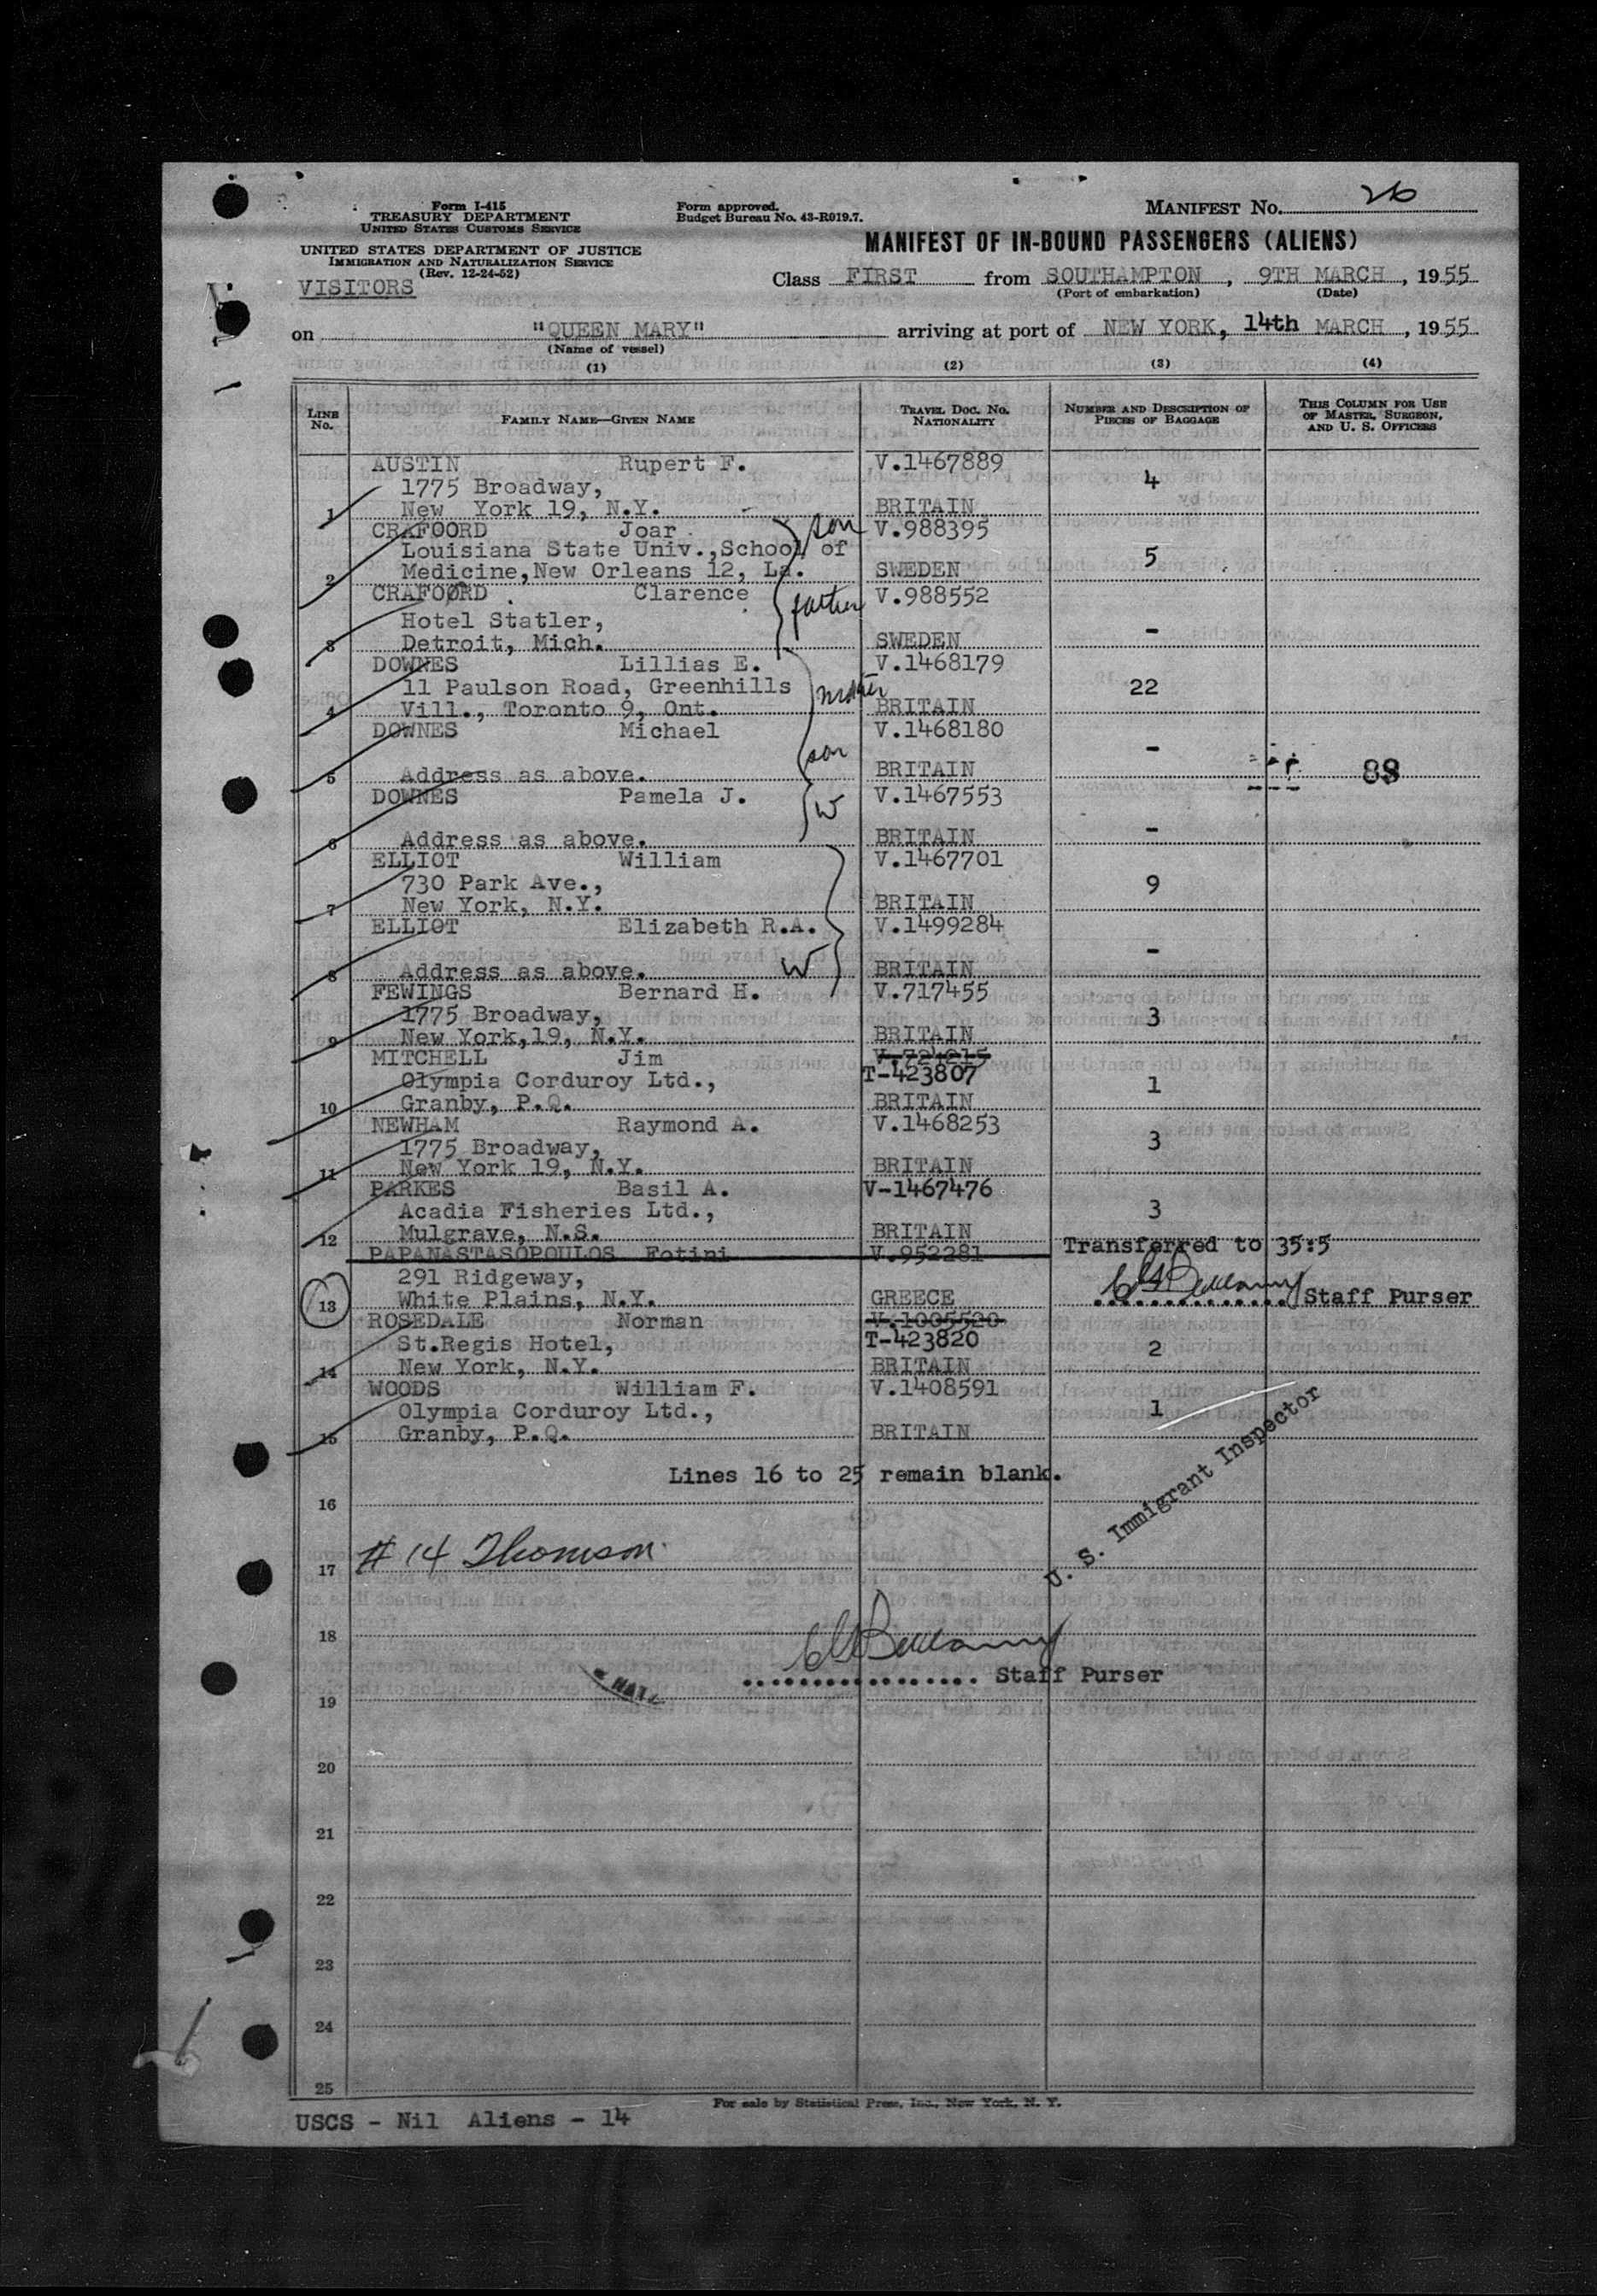 Form I-415
TREASURY DEPARTMENT
UNITED STATES CUSTOMS SERVICE
UNITED STATES DEPARTMENT OF JUSTICE
IMMIGRATION AND NATURALIZATION SERVICE
(Rev. 12-24-52)
VISITORS
Form approved.
Budget Bureau No. 43-R019.7.
MANIFEST NO. 26
MANIFEST OF IN-BOUND PASSENGERS (ALIENS)
Class FIRST from SOUTHAMPTON, 9TH MARCH, 1955
(Port of embarkation) (Date)
on "QUEEN MARY" arriving at port of NEW YORK, 14th MARCH, 1955
(Name of vessel)
(1) (2) (3) (4)
LINE NO. FAMILY NAME—GIVEN NAME TRAVEL DOC. NO. NATIONALITY NUMBER AND DESCRIPTION OF PIECES OF BAGGAGE THIS COLUMN FOR USE OF MASTER, SURGEON, AND U. S. OFFICERS
AUSTIN Rupert F. V.1467889
1775 Broadway, 4
1 New York 19, N.Y. BRITAIN
CRAFOORD Joar son V.988395
Louisiana State Univ.,School of 5
2 Medicine,New Orleans 12, La. SWEDEN
CRAFOORD Clarence father V.988552
Hotel Statler,
3 Detroit, Mich. SWEDEN -
DOWNES Lillias E. V.1468179
11 Paulson Road, Greenhills mother 22
4 Vill., Toronto 9, Ont. BRITAIN
DOWNES Michael V.1468180
son -
5 Address as above. BRITAIN 88
DOWNES Pamela J. V.1467553
W
6 Address as above. BRITAIN -
ELLIOT William V.1467701
730 Park Ave., 9
7 New York, N.Y. BRITAIN
ELLIOT Elizabeth R.A. V.1499284
-
8 Address as above. W BRITAIN
FEWINGS Bernard H. V.717455
1775 Broadway, 3
9 New York,19, N.Y. BRITAIN
MITCHELL Jim V.724215
T-423807
Olympia Corduroy Ltd., 1
10 Granby, P.Q. BRITAIN
NEWHAM Raymond A. V.1468253
1775 Broadway, 3
11 New York 19, N.Y. BRITAIN
PARKES Basil A. V-1467476
Acadia Fisheries Ltd., 3
12 Mulgrave, N.S. BRITAIN
PAPANASTASOPOULOS Fotini V.952281 Transferred to 35:5
291 Ridgeway,
13 White Plains, N.Y. GREECE Staff Purser
ROSEDALE Norman V.1005520
St.Regis Hotel, T-423820 2
14 New York, N.Y. BRITAIN
WOODS William F. V.1408591
Olympia Corduroy Ltd., 1
15 Granby, P.Q. BRITAIN
Lines 16 to 25 remain blank.
U. S. Immigrant Inspector
16
17 # 14 Thomson
18
Staff Purser
19
20
21
22
23
24
25
For sale by Statistical Press, Inc., New York, N. Y.
USCS - Nil Aliens - 14